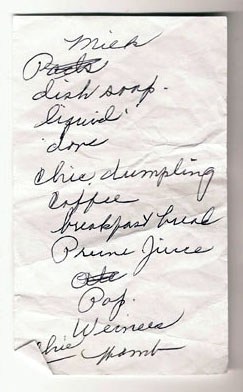 Milk
dish soap.
liquid
dove
chic. dumpling
Coffee
breakfast bread
Prune Juice
Pop.
Weiners